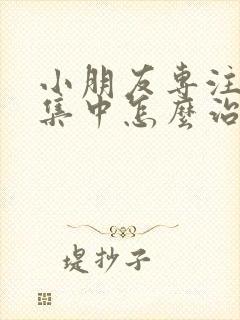 小朋友专注
集中怎麼治
堤抄子